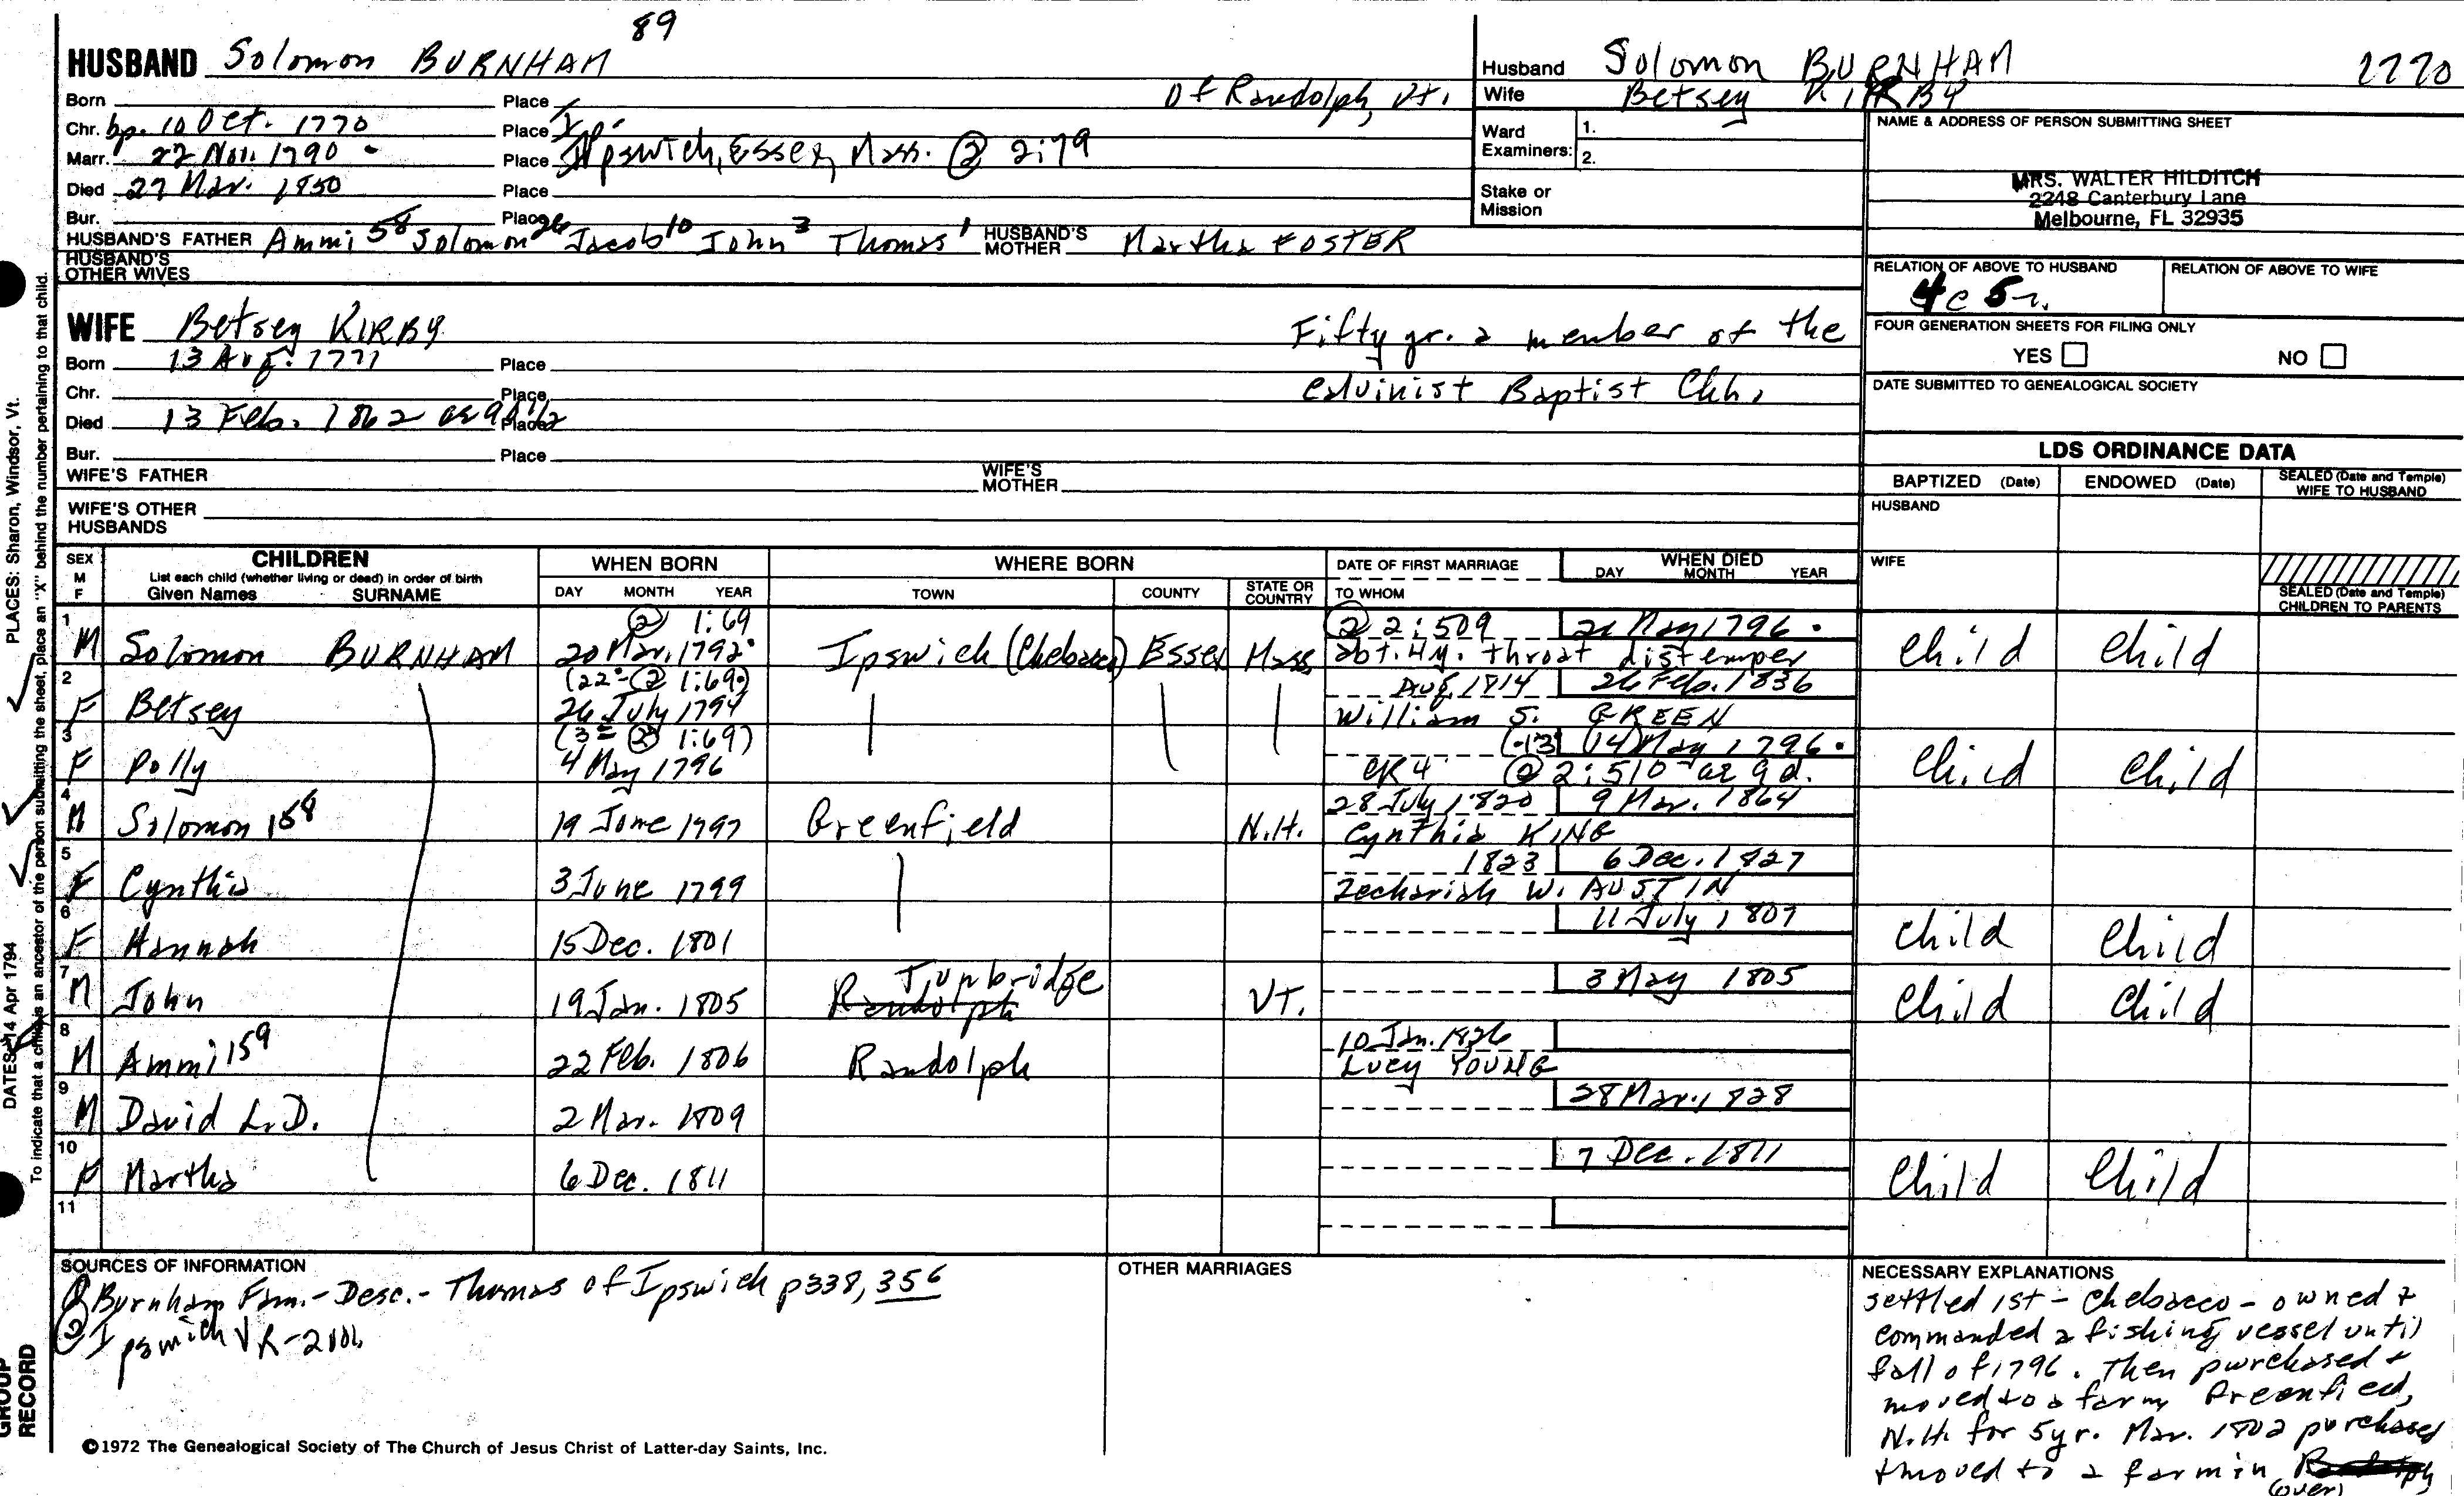 89
HUSBAND Solomon BURNHAM
Of Randolph, Vt.
Born Place
Chr. bp. 10 Oct. 1770 Place I p.
Marr. 22 Nov. 1790 Place Ipswich, Essex, Mass. ② 2:79
Died 27 Mar. 1850 Place
Bur. Place
HUSBAND'S FATHER Ammi 58 Solomon 26 Jacob 10 John 3 Thomas 1 HUSBAND'S MOTHER Martha FOSTER
HUSBAND'S OTHER WIVES
Husband Solomon BURNHAM 2770
Wife Betsey KIRBY
Ward Examiners: 1.
2.
Stake or Mission
NAME & ADDRESS OF PERSON SUBMITTING SHEET
MRS. WALTER HILDITCH
2248 Canterbury Lane
Melbourne, FL 32935
RELATION OF ABOVE TO HUSBAND RELATION OF ABOVE TO WIFE
4c 5r.
FOUR GENERATION SHEETS FOR FILING ONLY
YES NO
DATE SUBMITTED TO GENEALOGICAL SOCIETY
WIFE Betsey KIRBY
Fifty yr. a member of the
Calvinist Baptist Chh.
Born 13 Aug. 1771 Place
Chr. Place
Died 13 Feb. 1862 ae 90 1/2 Place
Bur. Place
WIFE'S FATHER WIFE'S MOTHER
WIFE'S OTHER HUSBANDS
LDS ORDINANCE DATA
BAPTIZED (Date) ENDOWED (Date) SEALED (Date and Temple) WIFE TO HUSBAND
HUSBAND
WIFE
SEALED (Date and Temple) CHILDREN TO PARENTS
SEX M F CHILDREN
List each child (whether living or dead) in order of birth
Given Names SURNAME
WHEN BORN
DAY MONTH YEAR
WHERE BORN
TOWN COUNTY STATE OR COUNTRY
DATE OF FIRST MARRIAGE
TO WHOM
WHEN DIED
DAY MONTH YEAR
② 1:69 ② 2:509 21 May 1796
1 M Solomon BURNHAM 20 Mar. 1792 Ipswich (Chebacco) Essex Mass. abt. 4 y. throat distemper Child Child
(22 - ② 1:69) Aug. 1814 26 Feb. 1836
2 F Betsey 26 July 1794 William S. GREEN
(3 = ② 1:69) (13) (14) May 1796
3 F Polly 4 May 1796 CR4 ② 2:510 ae 9 d. Child Child
28 July 1820 9 Mar. 1864
4 M Solomon 158 19 June 1797 Greenfield N.H. Cynthia KING
1823 6 Dec. 1827
5 F Cynthia 3 June 1799 Zechariah W. AUSTIN
11 July 1807
6 F Hannah 15 Dec. 1801 Child Child
Tunbridge 3 May 1805
7 M John 19 Jan. 1805 Randolph Vt. Child Child
10 Jan. 1826
8 M Ammi 159 22 Feb. 1806 Randolph Lucy YOUNG
28 Mar. 1828
9 M David L.D. 2 Mar. 1809
7 Dec. 1811
10 F Martha 6 Dec. 1811 Child Child
11
SOURCES OF INFORMATION
① Burnham Fam. - Desc. - Thomas of Ipswich p338, 356
② Ipswich VR - 2
OTHER MARRIAGES
NECESSARY EXPLANATIONS
settled 1st - Chebacco - owned &
commanded a fishing vessel until
fall of 1796. Then purchased &
moved to a farm Greenfied,
N.H. for 5 yr. Mar. 1802 purchased
& moved to a farm in Randolph
(over)
©1972 The Genealogical Society of The Church of Jesus Christ of Latter-day Saints, Inc.
PLACES: Sharon, Windsor, Vt.
DATES: 14 Apr 1794
To indicate that a child is an ancestor of the person submitting the sheet, place an "X" behind the number pertaining to that child.
GROUP
RECORD